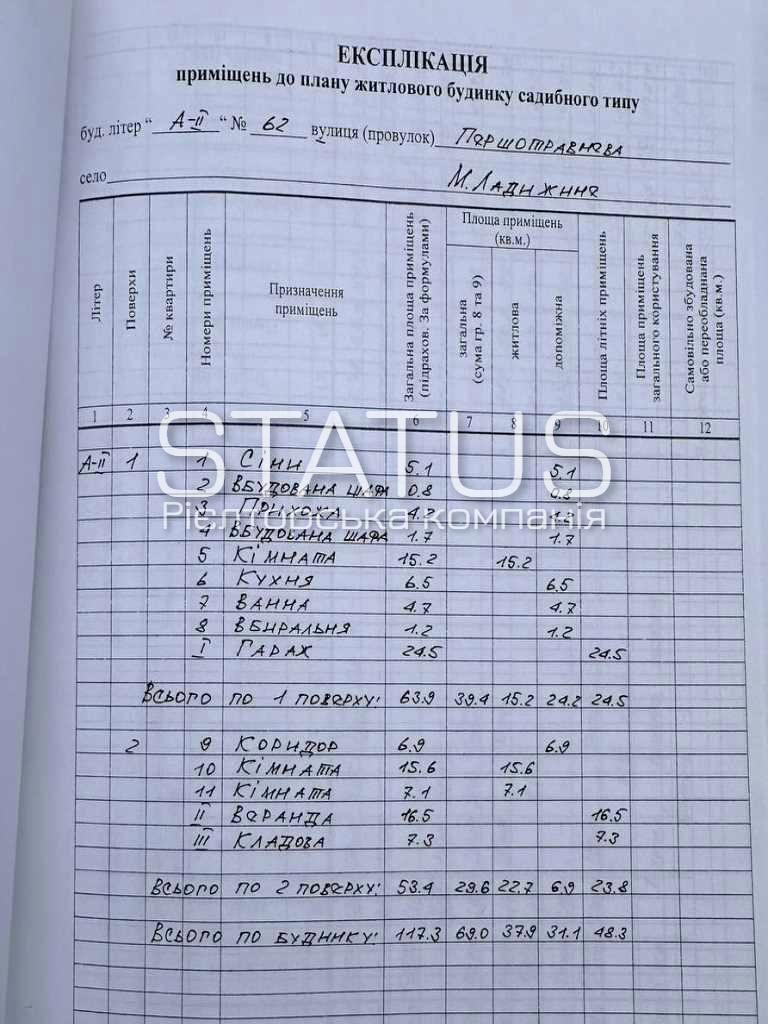 ЕКСПЛІКАЦІЯ
приміщень до плану житлового будинку садибного типу
буд. літер “ А-II “ № 62 вулиця (провулок) Першотравнева
село М. Ладижиня
Літер
Поверхи
№ квартири
Номери приміщень
Призначення приміщень
Загальна площа приміщень (підрахов. За формулами)
Площа приміщень (кв.м.)
загальна (сума гр. 8 та 9)
житлова
допоміжна
Площа літніх приміщень
Площа приміщень загального користування
Самовільно збудована або переобладнана площа (кв.м.)
1 2 3 4 5 6 7 8 9 10 11 12
А-II 1 1 Сіни 5.1 5.1
2 Вбудована шафа 0.8 0.8
3 Прихожа 4.2 4.2
4 Вбудована шафа 1.7 1.7
5 Кімната 15.2 15.2
6 Кухня 6.5 6.5
7 Ванна 4.7 4.7
8 Вбиральня 1.2 1.2
I Гараж 24.5 24.5
Всього по 1 поверху: 63.9 39.4 15.2 24.2 24.5
2 9 Коридор 6.9 6.9
10 Кімната 15.6 15.6
11 Кімната 7.1 7.1
II Веранда 16.5 16.5
III Кладова 7.3 7.3
Всього по 2 поверху: 53.4 29.6 22.7 6.9 23.8
Всього по будинку: 117.3 69.0 37.9 31.1 48.3
STATUS
Рієлторська компанія